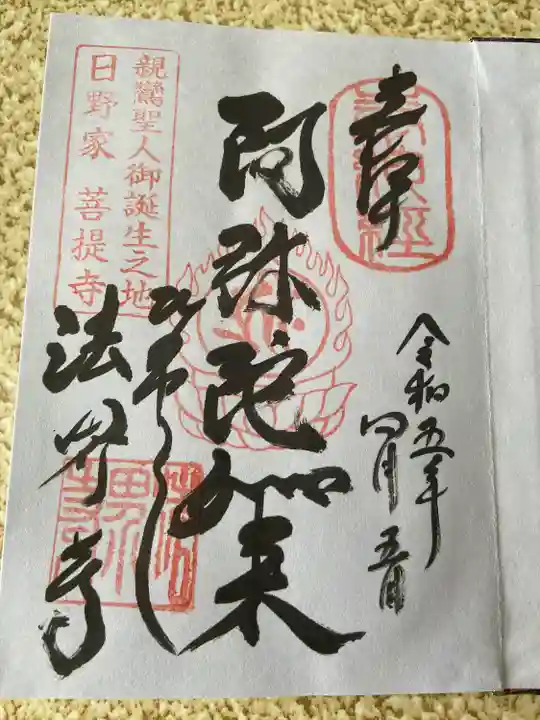 奉拝
令和五年
四月五日
阿弥陀如来
ひのやくし
法界寺
親鸞聖人御誕生之地
日野家菩提寺